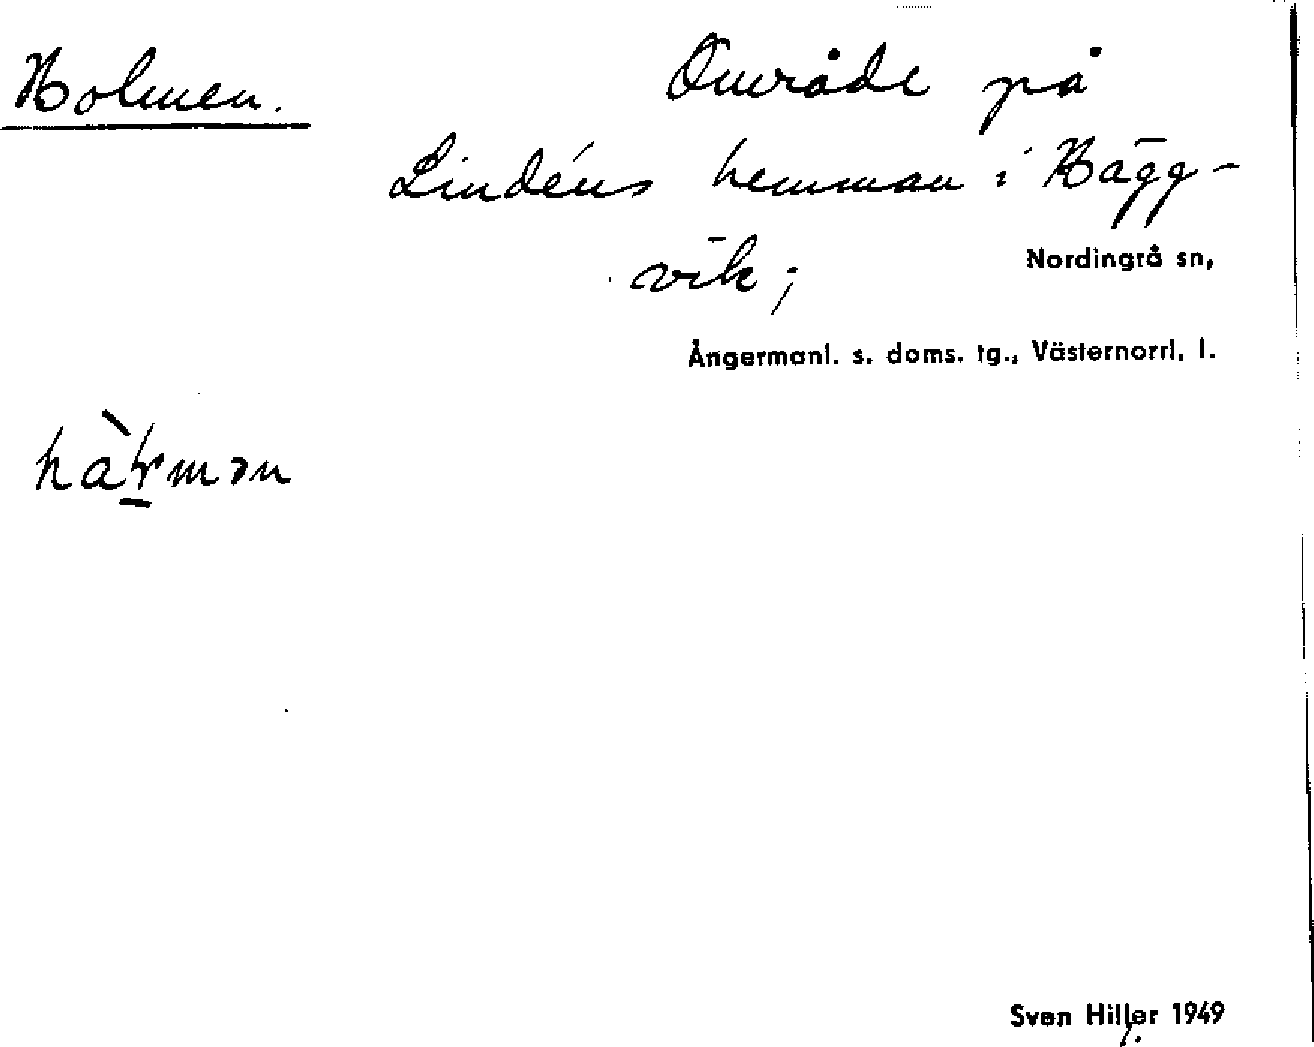 Holmen. Område på
Lindéns hemman i Hägg-
vik;
Nordingrå sn,
Ångermanl. s. doms. tg., Västernorrl. l.
Sven Hiller 1949